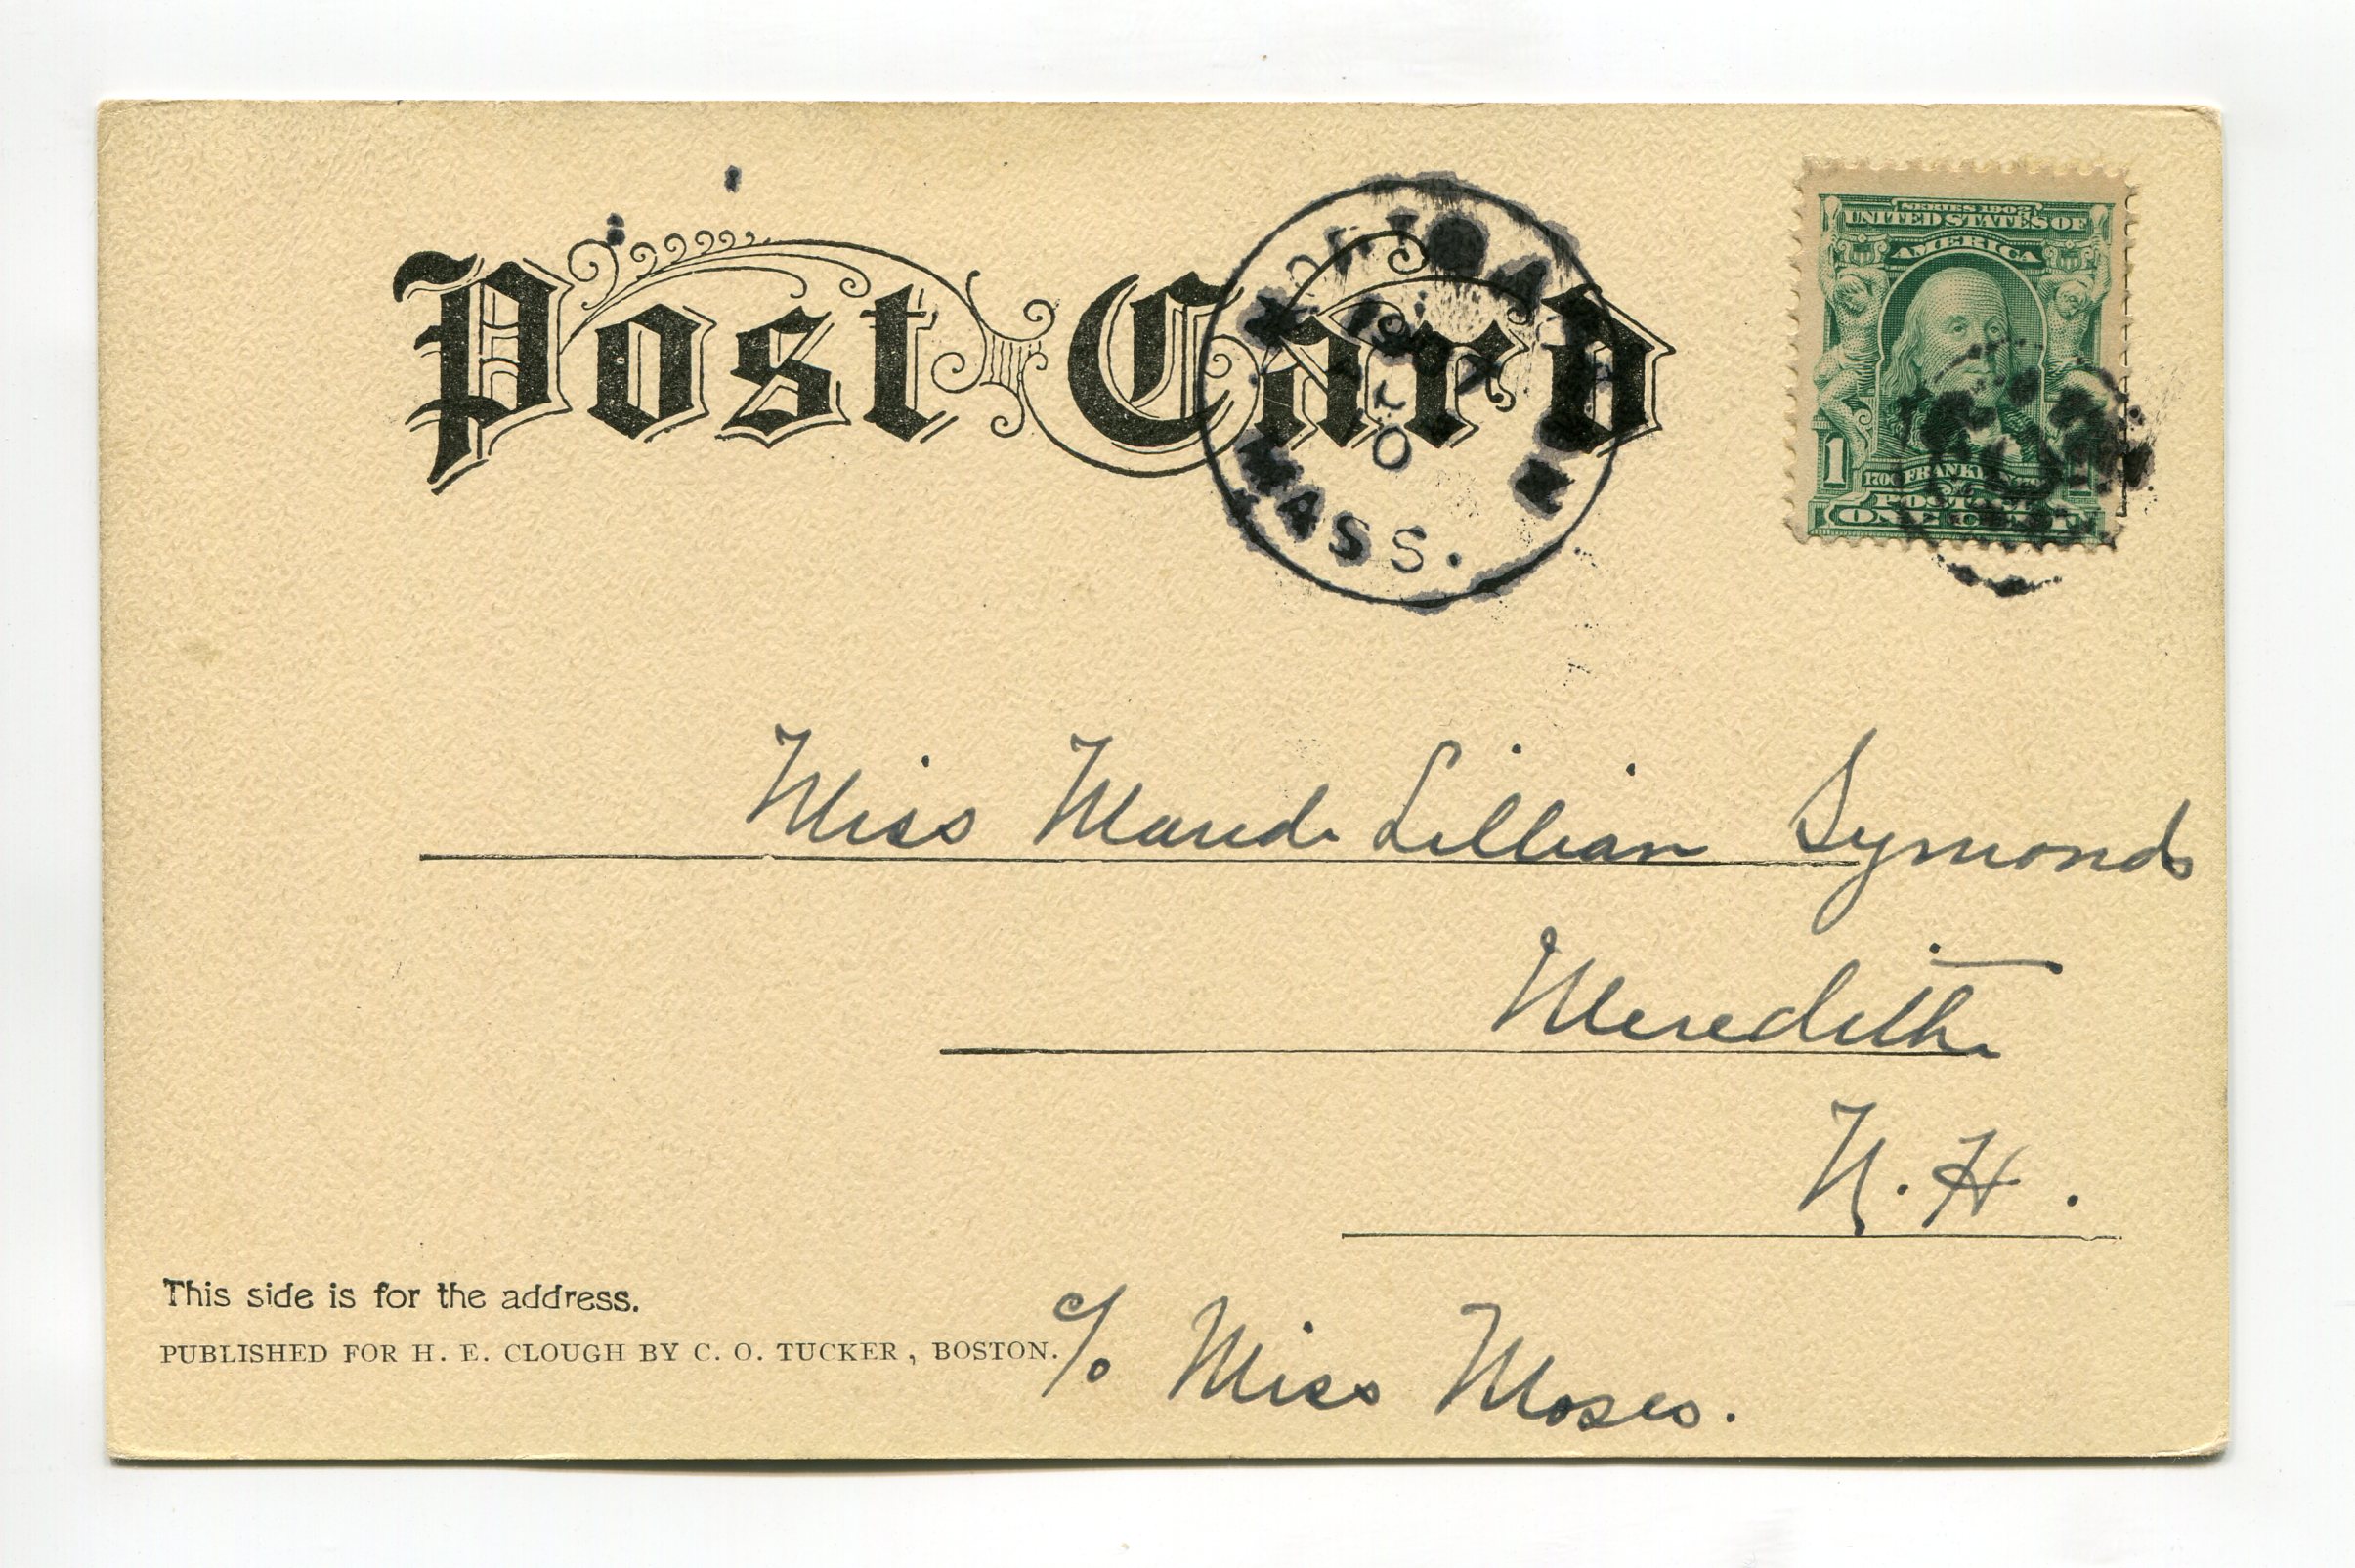 Post Card
MASS.
SERIES 1902
UNITED STATES OF
AMERICA
1
FRANKLIN
POSTAGE
ONE CENT
Miss Maud Lillian Symonds
Meredith
N. H.
This side is for the address.
PUBLISHED FOR H. E. CLOUGH BY C. O. TUCKER, BOSTON.
c/o Miss Moses.